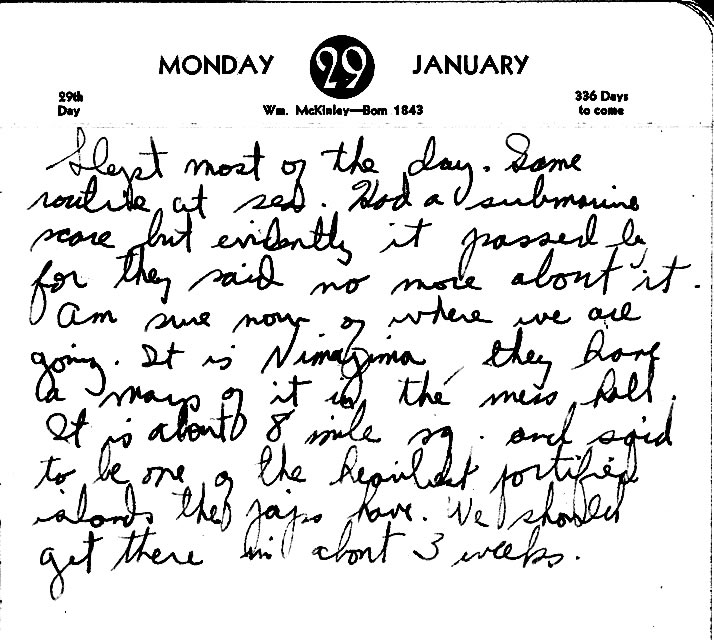 MONDAY 29 JANUARY
29th Day
Wm. McKinley—Born 1843
336 Days to come
Slept most of the day. Same
routine at sea. Had a submarine
scare but evidently it passed by
for they said no more about it.
Am sure now of where we are
going. It is Nimazima they have
a map of it in the mess hall.
It is about 8 mile sq. and said
to be one of the heaviest fortified
islands the japs have. We should
get there in about 3 weeks.